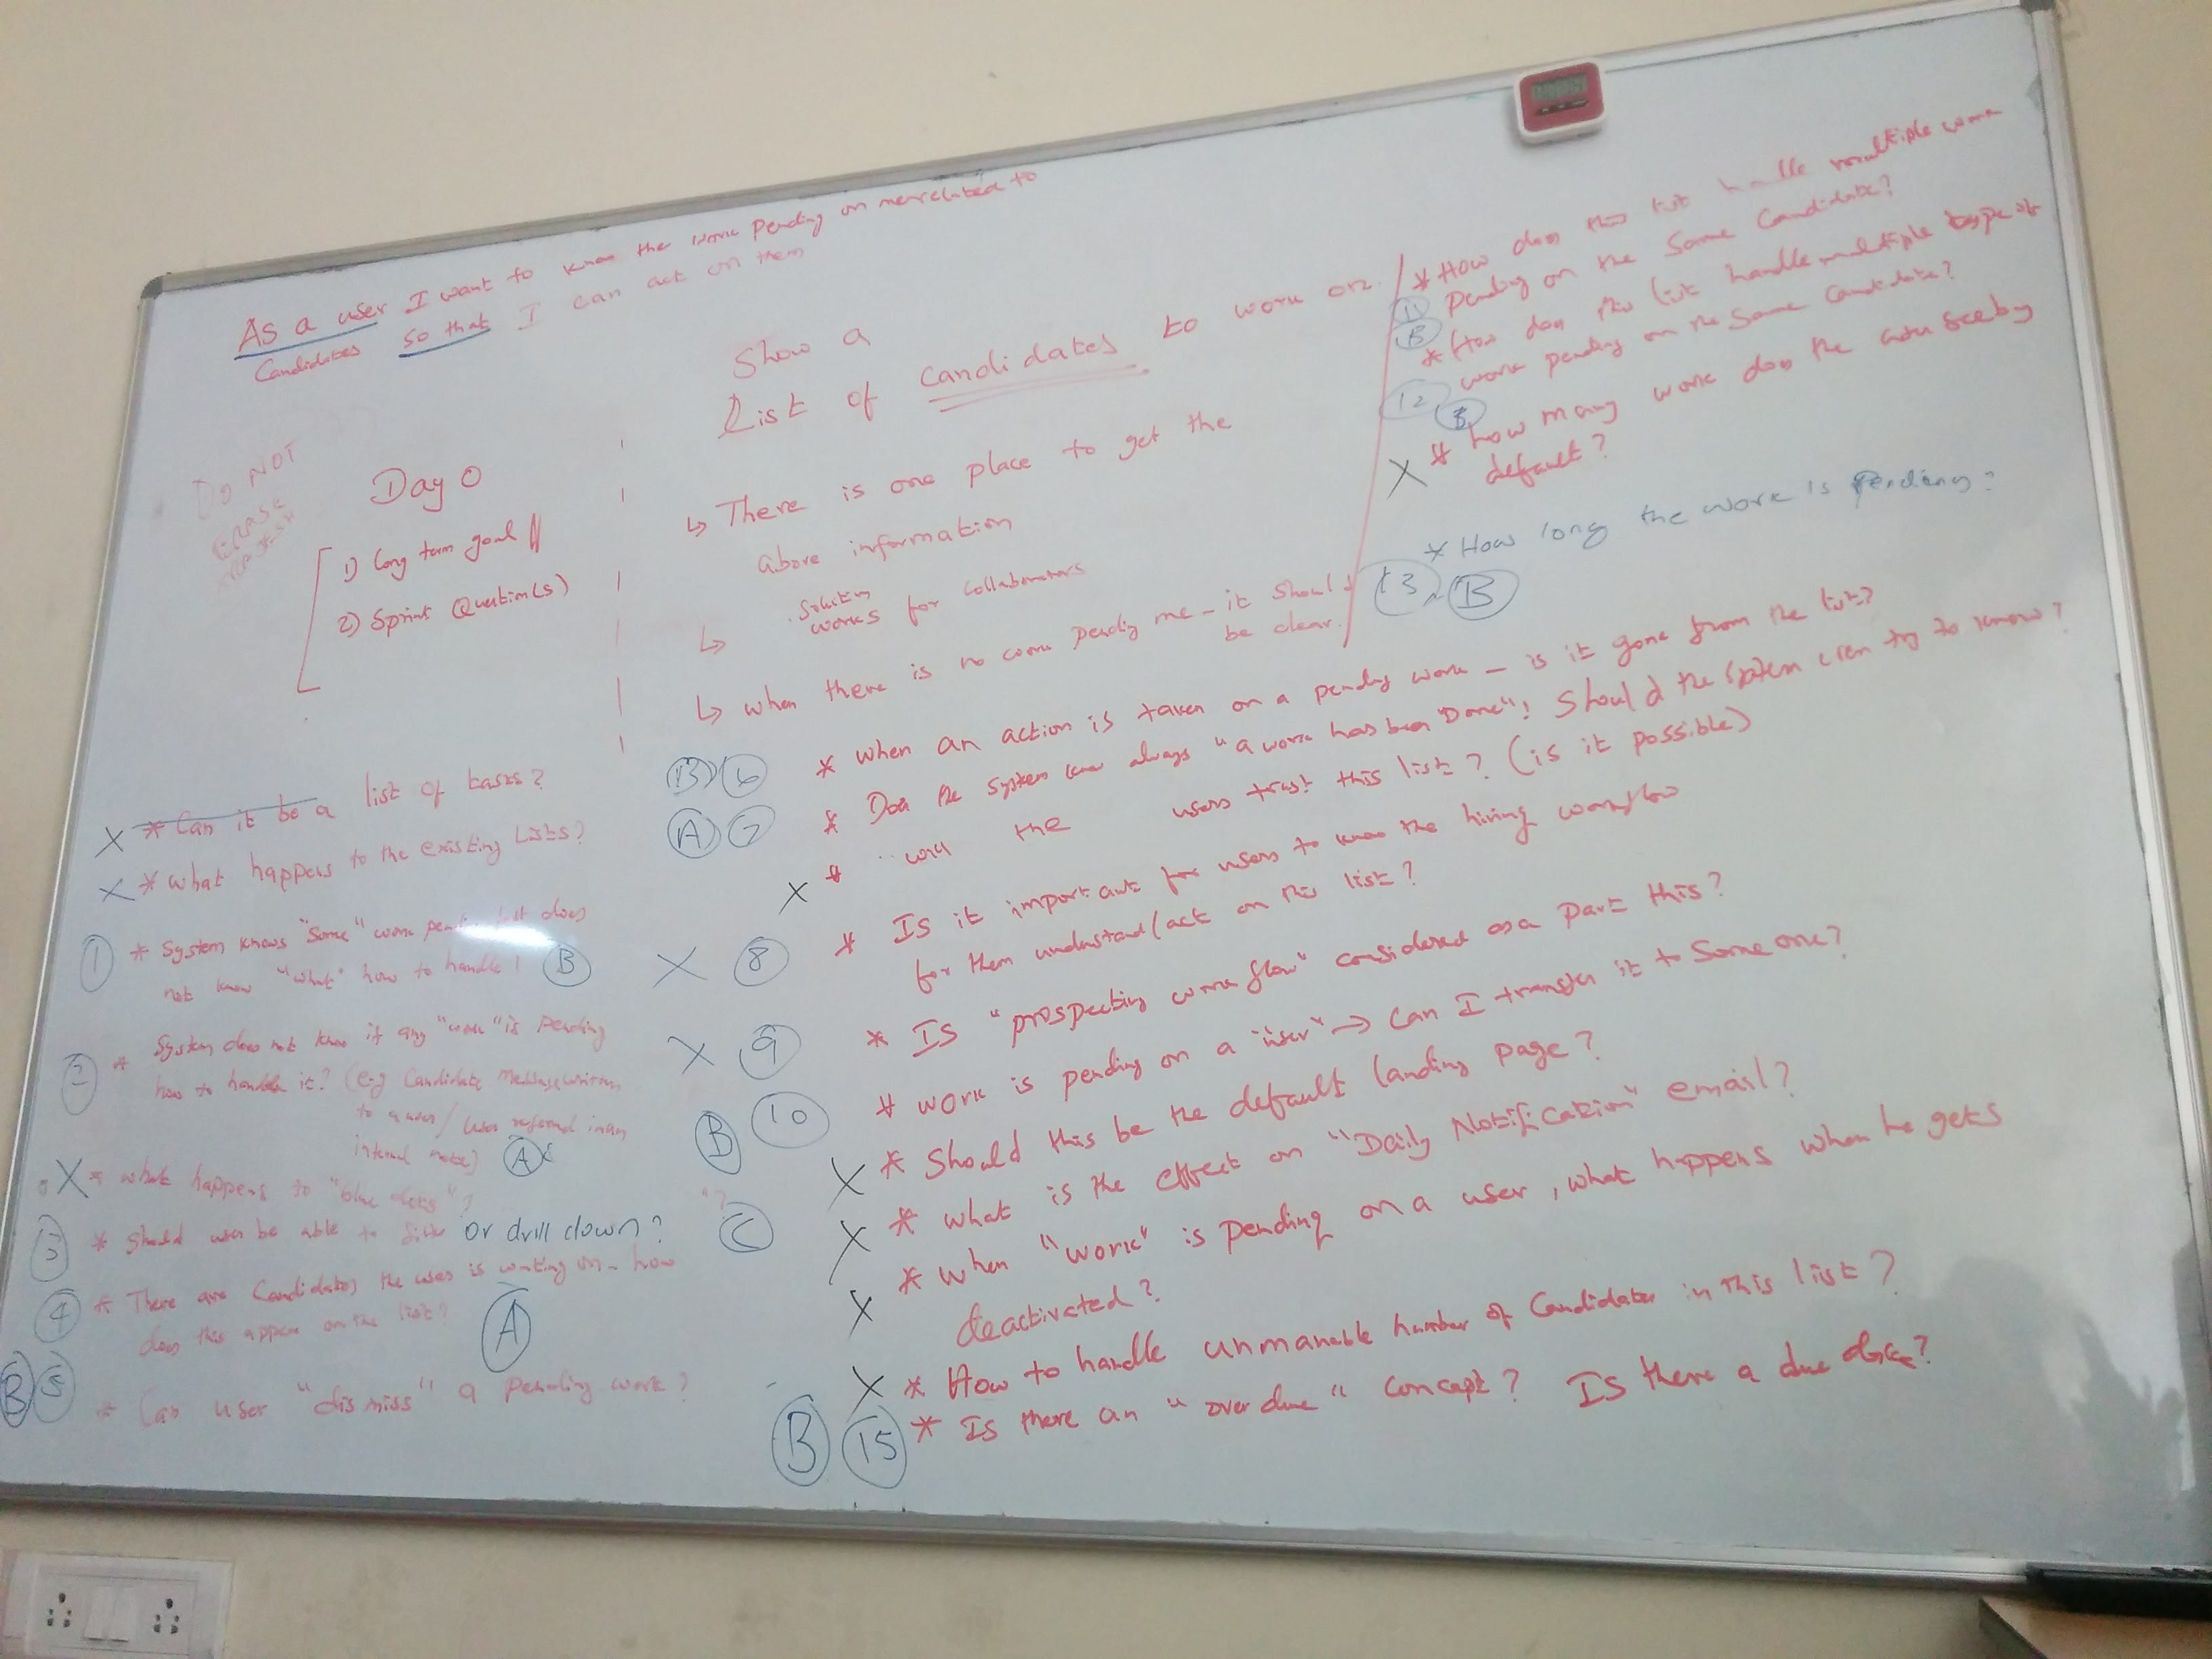 As a user I want to know the work pending on me related to
Candidates so that I can act on them
Show a
List of candidates to work on
Do NOT
ERASE
Day 0
1) Long term goal
2) Sprint Question(s)
↳ There is one place to get the
above information
↳ Solution
works for collaborators
↳ when there is no work pending me - it should
be clear.
* How does this list handle multiple work
11 pending on the same Candidate?
B
* How does this list handle multiple type of
work pending on the same candidate?
12 B
X * how many work does the user see by
default?
* How long the work is pending?
13 B
X * Can it be a list of tasks?
X * What happens to the existing Lists?
1 * System knows "some" work pending but does
not know "what" how to handle! B
2 * System does not know if any "work" is pending
how to handle it? (e.g Candidate Message written
to a user / user referred in an
internal note) A
X * what happens to "blue dots"?
3 * Should user be able to filter or drill down? C
4 * There are Candidates the user is waiting on - how
does this appear on the list? A
B 5 * Can user "dismiss" a pending work?
B 6 * when an action is taken on a pending work - is it gone from the list?
A 7 * Does the system know always "a work has been Done"! Should the system even try to know?
X * will the users trust this list? (is it possible)
X 8 * Is it important for users to know the hiring workflow
for them understand/act on this list?
X 9 * IS "prospecting workflow" considered as a part this?
B 10 * work is pending on a "user" → Can I transfer it to Someone?
X * Should this be the default landing page?
X * what is the effect on "Daily Notification" email?
X * when "work" is pending on a user, what happens when he gets
deactivated?
X * How to handle unmanable number of Candidates in this list?
B 15 * Is there an "over due" concept? Is there a due date?